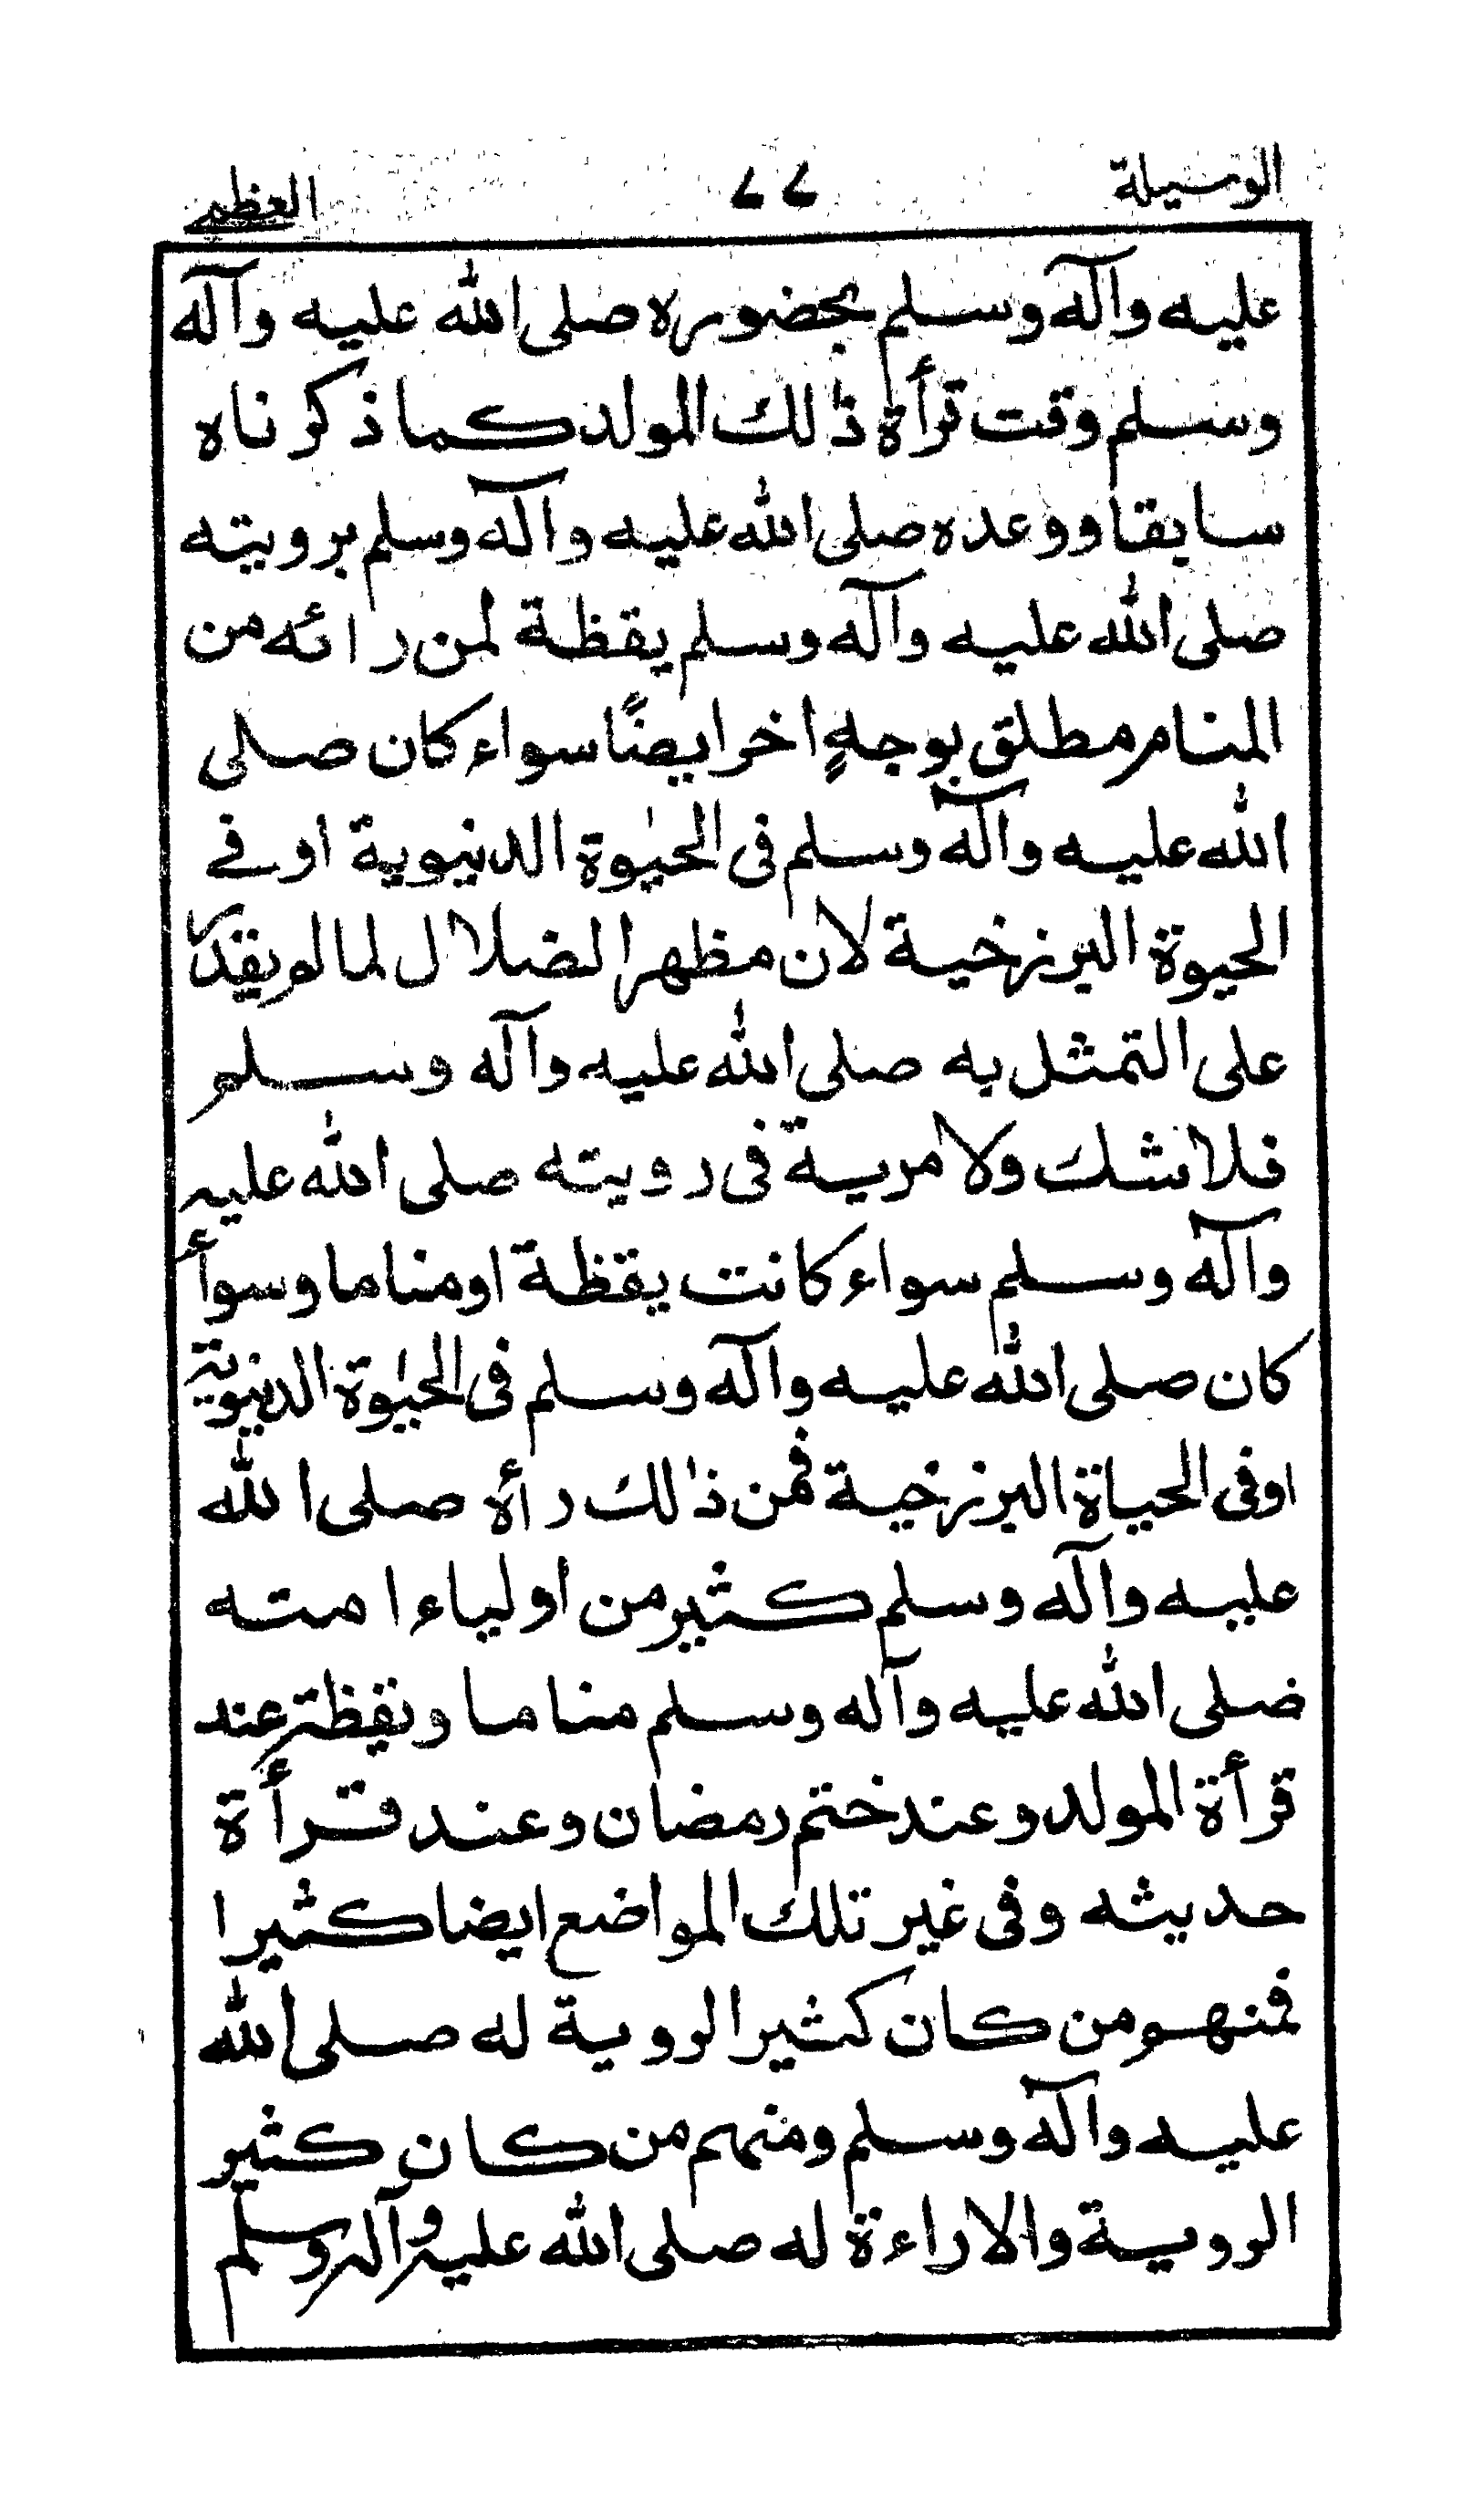 الوسيلة ٧٧ العظمى
عليه وآله وسلم بحضوره صلى الله عليه وآله
وسلم وقت قرأة ذالك المولد كما ذكرناه
سابقا ووعده صلى الله عليه وآله وسلم برويته
صلى الله عليه وآله وسلم يقظة لمن رائه من
المنام مطلق بوجهٍ اخر ايضًا سواء كان صلى
الله عليه وآله وسلم فى الحيٰوة الدنيوية او فے
الحيوة البرزخية لان مظهر الضلال لما لم يقدر
على التمثل به صلى الله عليه وآله وسلم
فلا شك ولا مرية فى رويته صلى الله عليه
وآله وسلم سواء كانت يقظة او مناما وسوأ
كان صلى الله عليه وآله وسلم فى الحيٰوة الدنيوية
او فى الحياة البرزخية فمن ذٰلك رأه صلى الله
عليه وآله وسلم كثير من اولياء امته
صلى الله عليه وآله وسلم مناما ويقظة عند
قرأة المولد وعند ختم رمضان وعند قرأة
حديثه وفى غير تلك المواضع ايضا كثيرا
فمنهم من كان كثير الروية له صلى الله
عليه وآله وسلم ومنهم من كان كثير
الروية والاراءة له صلى الله عليه وآله وسلم